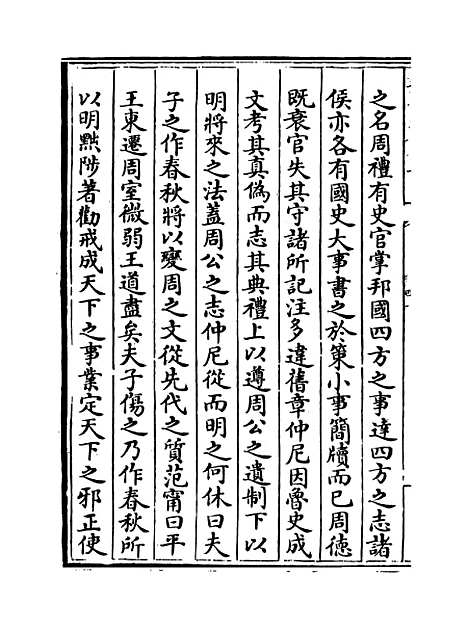 之名周禮有史官掌邦國四方之事達四方之志諸
侯亦各有國史大事書之於策小事簡牘而已周德
既衰官失其守諸所記注多違舊章仲尼因魯史成
文考其真偽而志其典禮上以遵周公之遺制下以
明將來之法蓋周公之志仲尼從而明之何休曰夫
子之作春秋將以變周之文從先代之質范甯曰平
王東遷周室微弱王道盡矣夫子傷之乃作春秋所
以明黜陟著勸戒成天下之事業定天下之邪正使